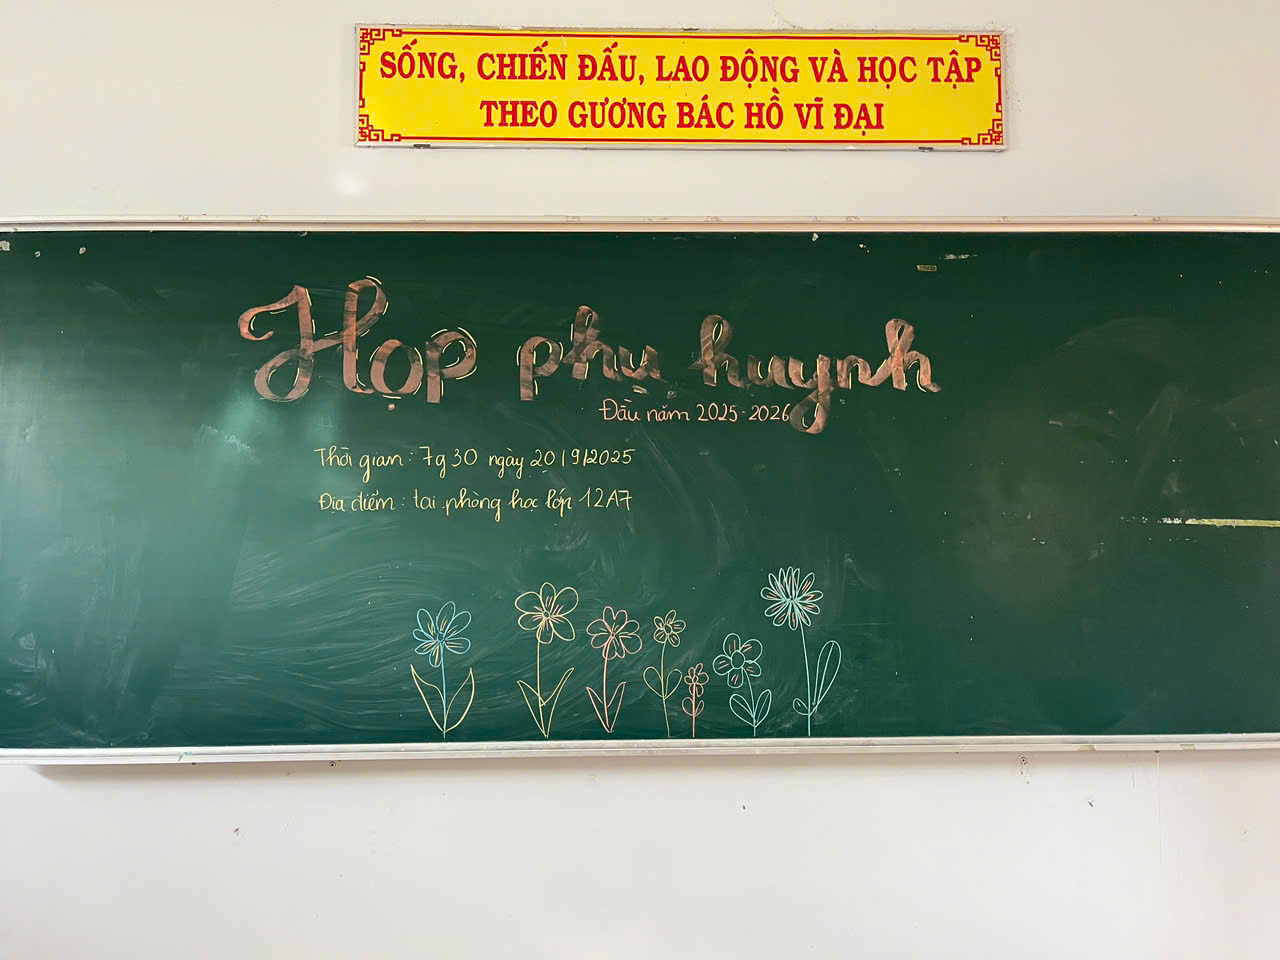 SỐNG, CHIẾN ĐẤU, LAO ĐỘNG VÀ HỌC TẬP
THEO GƯƠNG BÁC HỒ VĨ ĐẠI
Họp phụ huynh
Đầu năm 2025-2026
Thời gian: 7g30 ngày 20/9/2025
Địa điểm: tại phòng học lớp 12A7